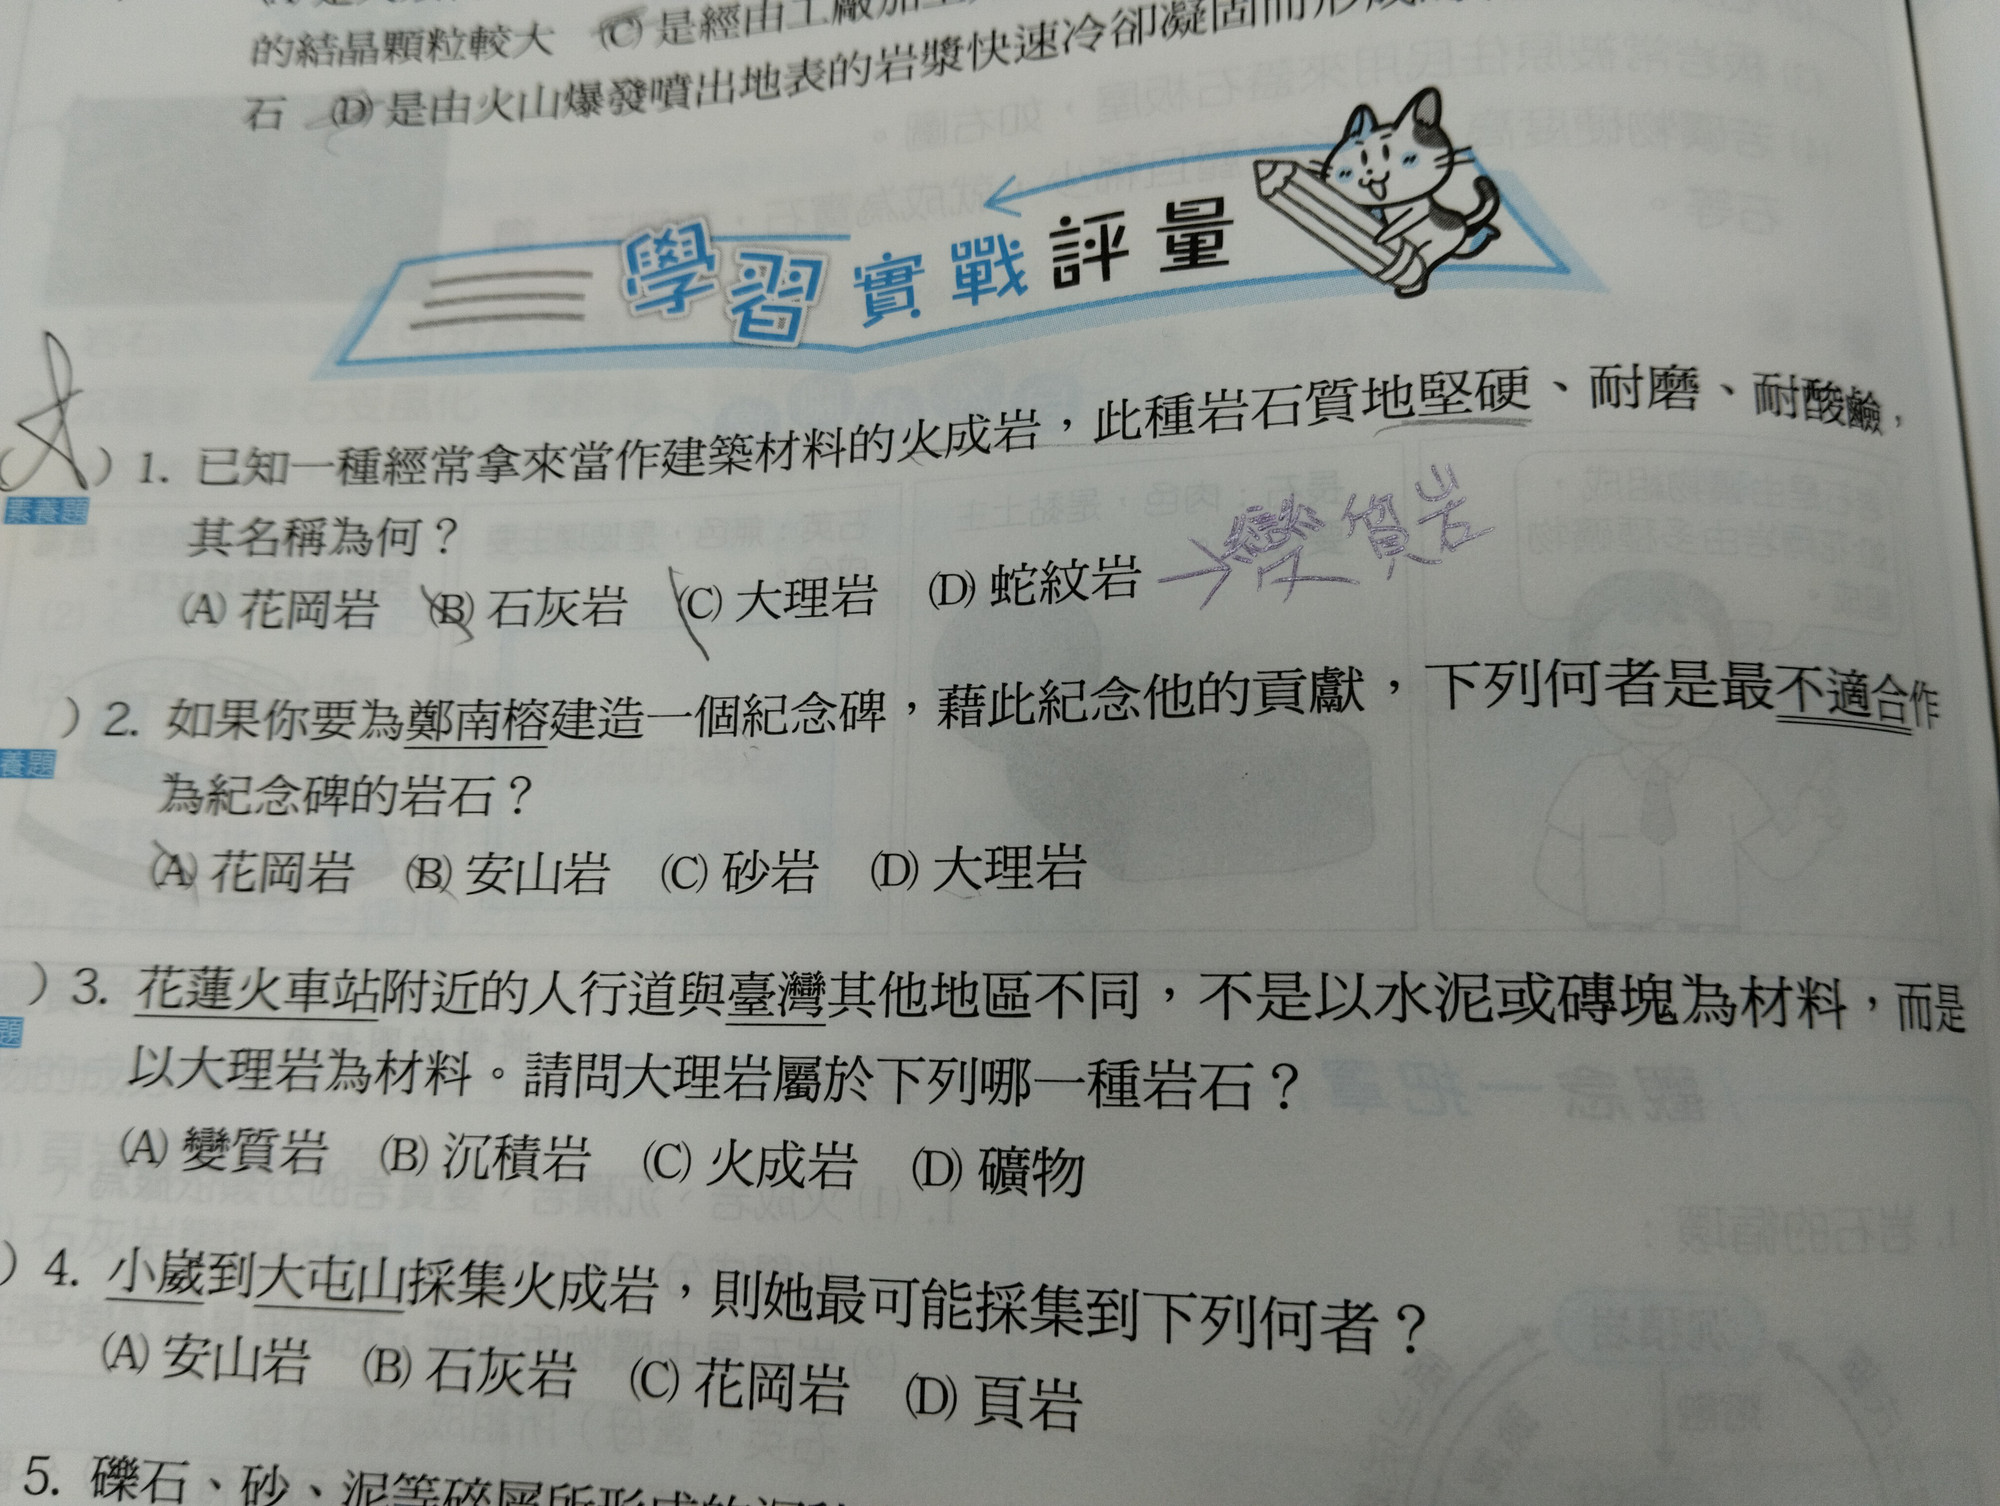 的結晶顆粒較大 (C) 是經由工廠加工
石 (D) 是由火山爆發噴出地表的岩漿快速冷卻凝固而形成
學習實戰評量
(A) 1. 已知一種經常拿來當作建築材料的火成岩，此種岩石質地堅硬、耐磨、耐酸鹼，
素養題
其名稱為何？
(A) 花岡岩 (B) 石灰岩 (C) 大理岩 (D) 蛇紋岩 →變質岩
) 2. 如果你要為鄭南榕建造一個紀念碑，藉此紀念他的貢獻，下列何者是最不適合作
養題
為紀念碑的岩石？
(A) 花岡岩 (B) 安山岩 (C) 砂岩 (D) 大理岩
) 3. 花蓮火車站附近的人行道與臺灣其他地區不同，不是以水泥或磚塊為材料，而是
題
以大理岩為材料。請問大理岩屬於下列哪一種岩石？
(A) 變質岩 (B) 沉積岩 (C) 火成岩 (D) 礦物
) 4. 小崴到大屯山採集火成岩，則她最可能採集到下列何者？
(A) 安山岩 (B) 石灰岩 (C) 花岡岩 (D) 頁岩
5. 礫石、砂、泥等碎屑所形成的沉積